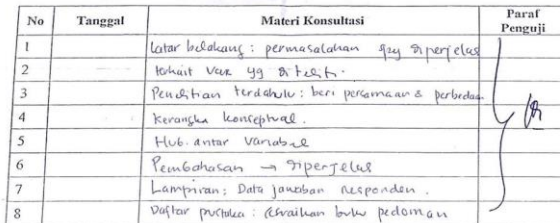 No Tanggal Materi Konsultasi Paraf Penguji
1 Latar belakang : permasalahan diperjelas
2 terkait var yg diteliti.
3 Penelitian terdahulu : beri persamaan & perbedaan
4 Kerangka konseptual.
5 Hub. antar variabel
6 Pembahasan → diperjelas
7 Lampiran : Data jawaban responden.
8 Daftar pustaka : sesuaikan buku pedoman